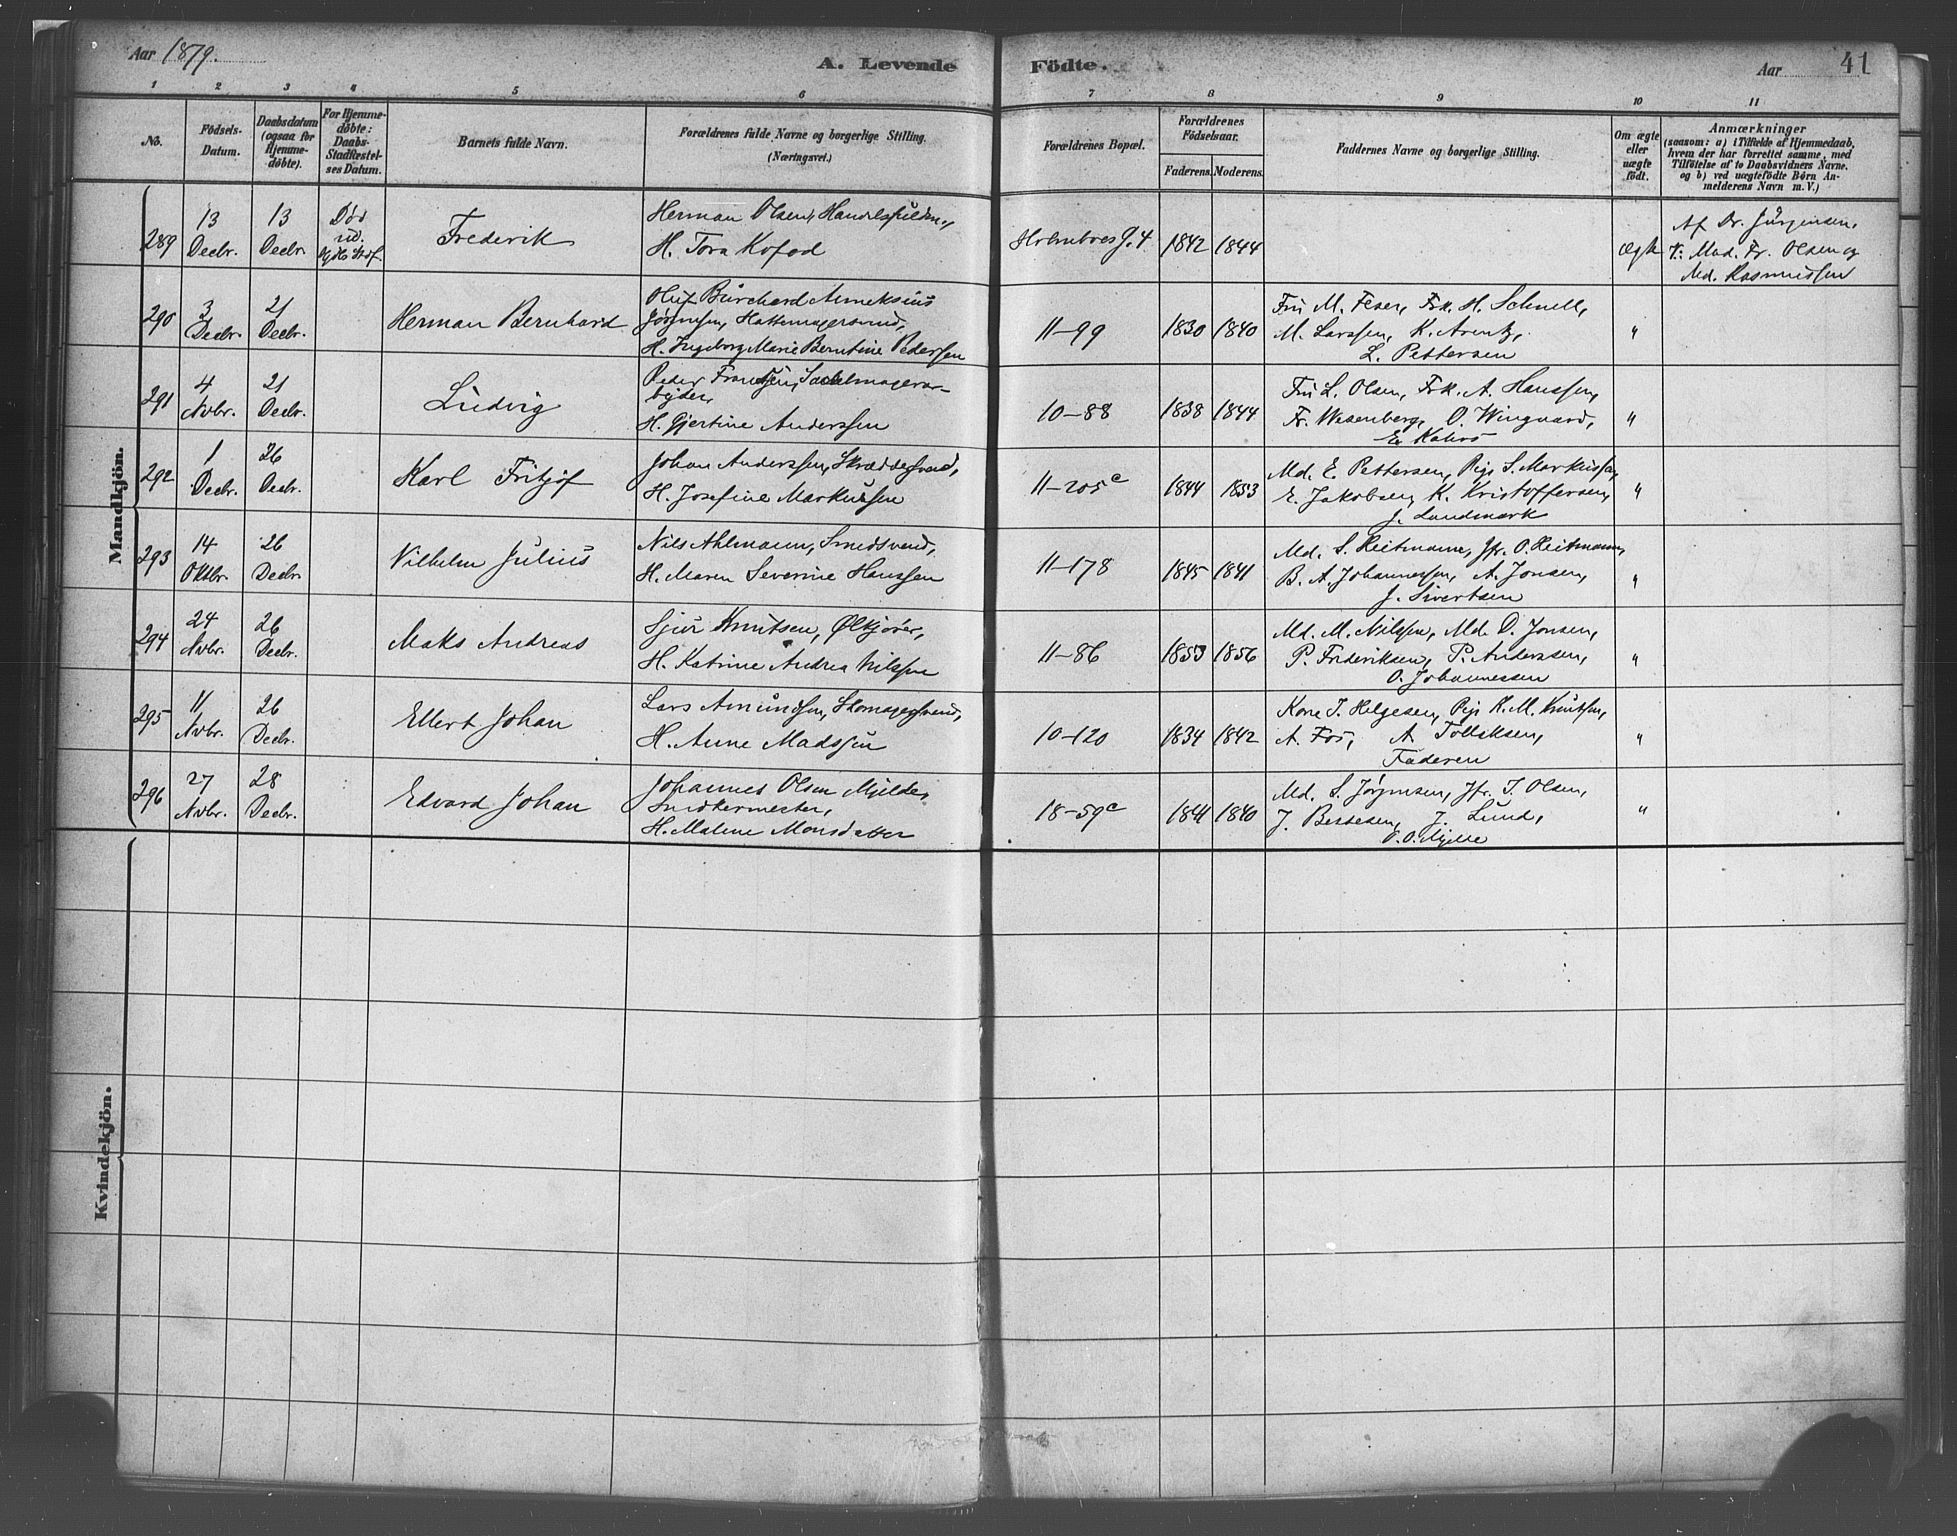 Aar 1879.
A. Levende Födte.
Aar 41
1 2 3 4 5 6 7 8 9 10 11
No.
Födsels-Datum.
Daabsdatum (ogsaa for Hjemme-döbte).
For Hjemme-döbte: Daabs-Stadfæstel-ses Datum.
Barnets fulde Navn.
Forældrenes fulde Navne og borgerlige Stilling. (Næringsvei.)
Forældrenes Bopæl.
Forældrenes Födselsaar.
Faderens. Moderens.
Faddernes Navne og borgerlige Stilling.
Om ægte eller uægte födt.
Anmærkninger
(saasom: a) i Tilfælde af Hjemmedaab,
hvem der har forrettet samme, med
Tilföielse af to Daabsvidners Navne.
og b) ved uægtefödte Börn An-
melderens Navn m. V.)
Mandkjön.
289 13 Decbr. 13 Decbr. Död ud.
Frederik
Herman Olsen,
H. Tora Kofod
1842 1844 Ægte
Af Dr. Jürgensen.
V: Mad. Fr. Olsen og
Md. Rasmussen
290 3 Decbr. 21 Decbr.
Herman Bernhard
Oluf Burchard
Jörgensen, Hattemagersvend,
H. Ingeborg Marie Berntine Pedersen
11-99 1830 1840
Fru M. Feser, Frk. H. Schnell,
M. Larssen, K. Arentz,
L. Pettersen
"
291 4 Nvbr. 21 Decbr.
Ludvig
Peder Frantsen, Sadelmagerar-
beider,
H. Gjertine Anderssen
10-88 1838 1844
Fru L. Olsen, Frk. A. Hanssen,
Fr. Wesenberg, O. Wingaard,
E. Kahrs
"
292 1 Decbr. 26 Decbr.
Karl Fritjof
Johan Anderssen, Skræddersvend,
H. Josefine Markussen
11-205c 1844 1853
Md. E. Pettersen, Pige S. Markussen,
E. Jakobsen, K. Kristoffersen,
J. Landmark
"
293 14 Oktbr. 26 Decbr.
Vilhelm Julius
Nils Ahlmann, Smedsvend,
H. Maren Severine Hanssen
11-178 1845 1841
Md. S. Reitmann, Jfr. O. Reitmann,
B. A. Johannessen, A. Jonsen,
J. Sivertsen
"
294 24 Nvbr. 26 Decbr.
Maks Andreas
Sjur Knutsen, Ølkjører,
H. Katrine Andrea Nilssen
11-86 1853 1856
Md. M. Nilssen, Md. D. Jonsen,
P. Frederiksen, P. Anderssen,
O. Johannessen
"
295 11 Nvbr. 26 Decbr.
Ellert Johan
Lars Amundsen, Skomagersvend,
H. Anne Madssen
10-120 1834 1842
Kone I. Helgesen, Pige K. M. Knutsen,
A. Fos, A. Tollefsen,
Faderen
"
296 27 Nvbr. 28 Decbr.
Edvard Johan
Johannes Olsen Mjelde,
Snedkermester,
H. Malene Monsdatter
18-59c 1841 1840
Md. S. Jørgensen, Jfr. I. Olsen,
J. Lund,
O. O. Mjelde
"
Kvindekjön.